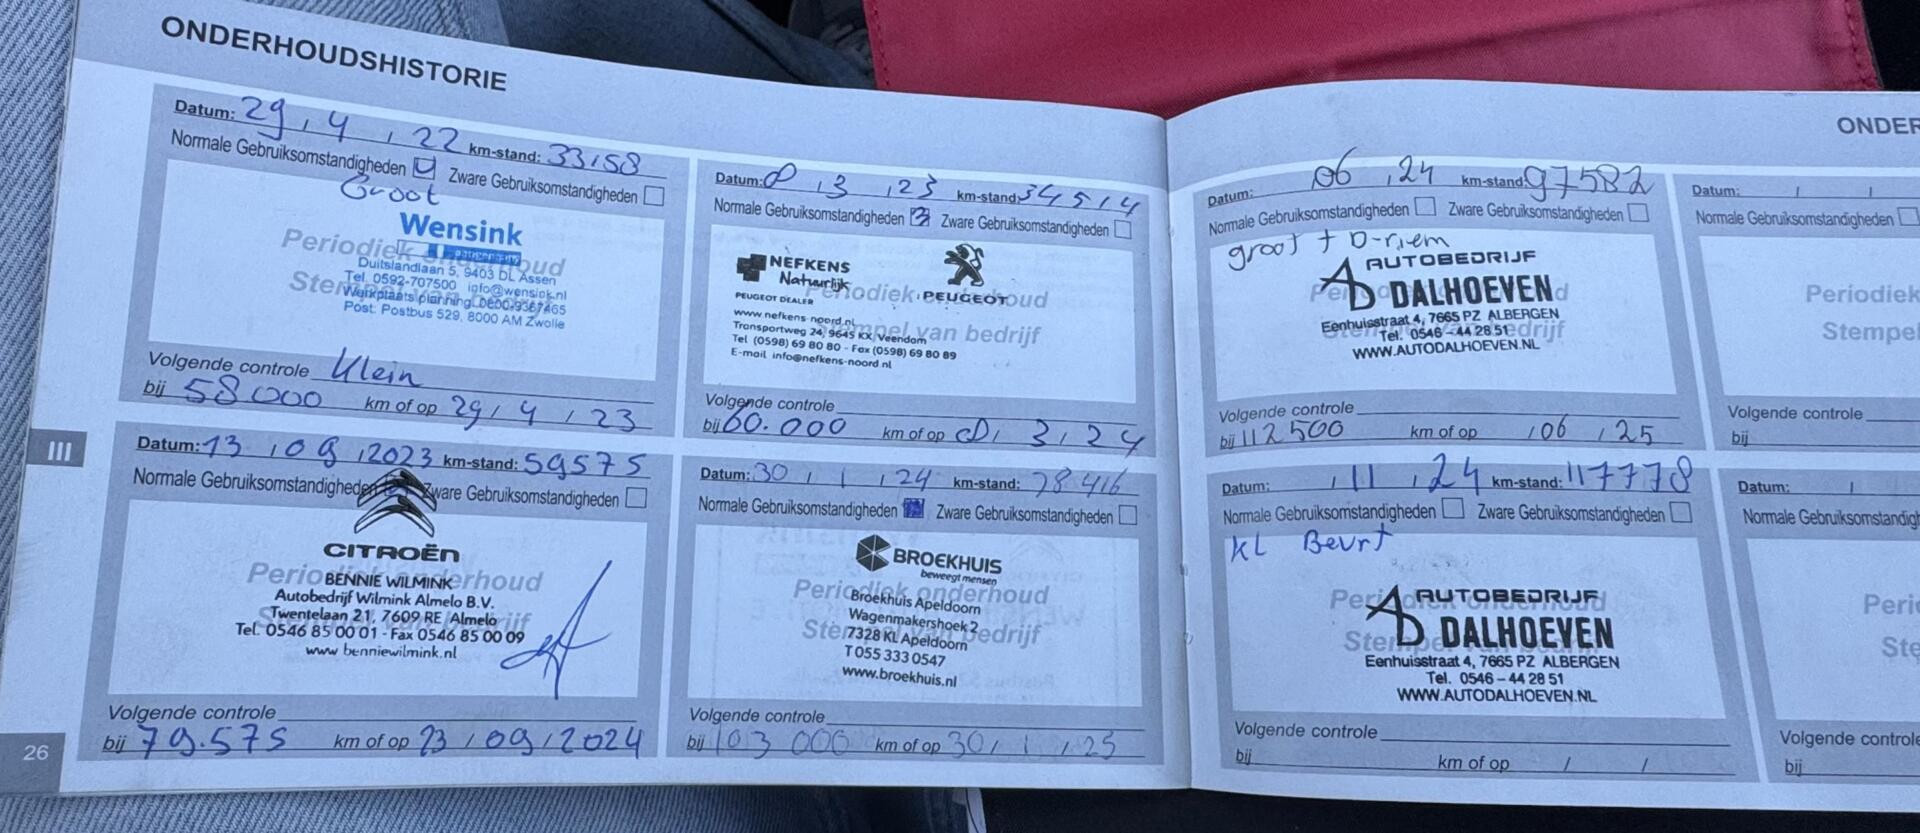 ONDERHOUDSHISTORIE
Datum: 29 , 4 , 22 km-stand: 33158
Normale Gebruiksomstandigheden Zware Gebruiksomstandigheden
Groot
Wensink
Periodiek onderhoud
Duitslandlaan 5, 9403 DL Assen
Tel. 0592-707500 info@wensink.nl
Stempel van bedrijf
Werkplaats planning 0800-9367465
Post: Postbus 529, 8000 AM Zwolle
Volgende controle Klein
bij 58000 km of op 29 / 4 / 23
Datum: 8 , 3 , 23 km-stand: 34514
Normale Gebruiksomstandigheden Zware Gebruiksomstandigheden
NEFKENS
Natuurlijk
PEUGEOT DEALER
PEUGEOT
Periodiek onderhoud
www.nefkens-noord.nl
Stempel van bedrijf
Transportweg 24, 9645 KX Veendam
Tel (0598) 69 80 80 - Fax (0598) 69 80 89
E-mail info@nefkens-noord.nl
Volgende controle
bij 60.000 km of op 8 , 3 , 24
Datum: 13 , 09 , 2023 km-stand: 59575
Normale Gebruiksomstandigheden Zware Gebruiksomstandigheden
CITROËN
Periodiek onderhoud
BENNIE WILMINK
Autobedrijf Wilmink Almelo B.V.
Stempel van bedrijf
Twentelaan 21, 7609 RE Almelo
Tel. 0546 85 00 01 - Fax 0546 85 00 09
www benniewilmink.nl
Volgende controle
bij 79.575 km of op 23 / 09 / 2024
Datum: 30 , 1 , 24 km-stand: 78416
Normale Gebruiksomstandigheden Zware Gebruiksomstandigheden
BROEKHUIS
beweegt mensen
Periodiek onderhoud
Broekhuis Apeldoorn
Wagenmakershoek 2
Stempel van bedrijf
7328 KL Apeldoorn
T 055 333 0547
www.broekhuis.nl
Volgende controle
bij 103 000 km of op 30 , 1 , 25
III
26
ONDER
Datum: 06 , 24 km-stand: 97582
Normale Gebruiksomstandigheden Zware Gebruiksomstandigheden
groot + D-riem
AUTOBEDRIJF
DALHOEVEN
Eenhuisstraat 4, 7665 PZ ALBERGEN
Tel. 0546 – 44 28 51
WWW.AUTODALHOEVEN.NL
Volgende controle
bij 112500 km of op , 06 , 25
Datum: , 11 , 24 km-stand: 117778
Normale Gebruiksomstandigheden Zware Gebruiksomstandigheden
KL Beurt
AUTOBEDRIJF
DALHOEVEN
Eenhuisstraat 4, 7665 PZ ALBERGEN
Tel. 0546 – 44 28 51
WWW.AUTODALHOEVEN.NL
Volgende controle
bij km of op / /
Datum: / /
Normale Gebruiksomstandigheden
Periodiek
Stempel
Volgende controle
bij
Datum: /
Normale Gebruiksomstandigh
Perio
Ste
Volgende controle
bij